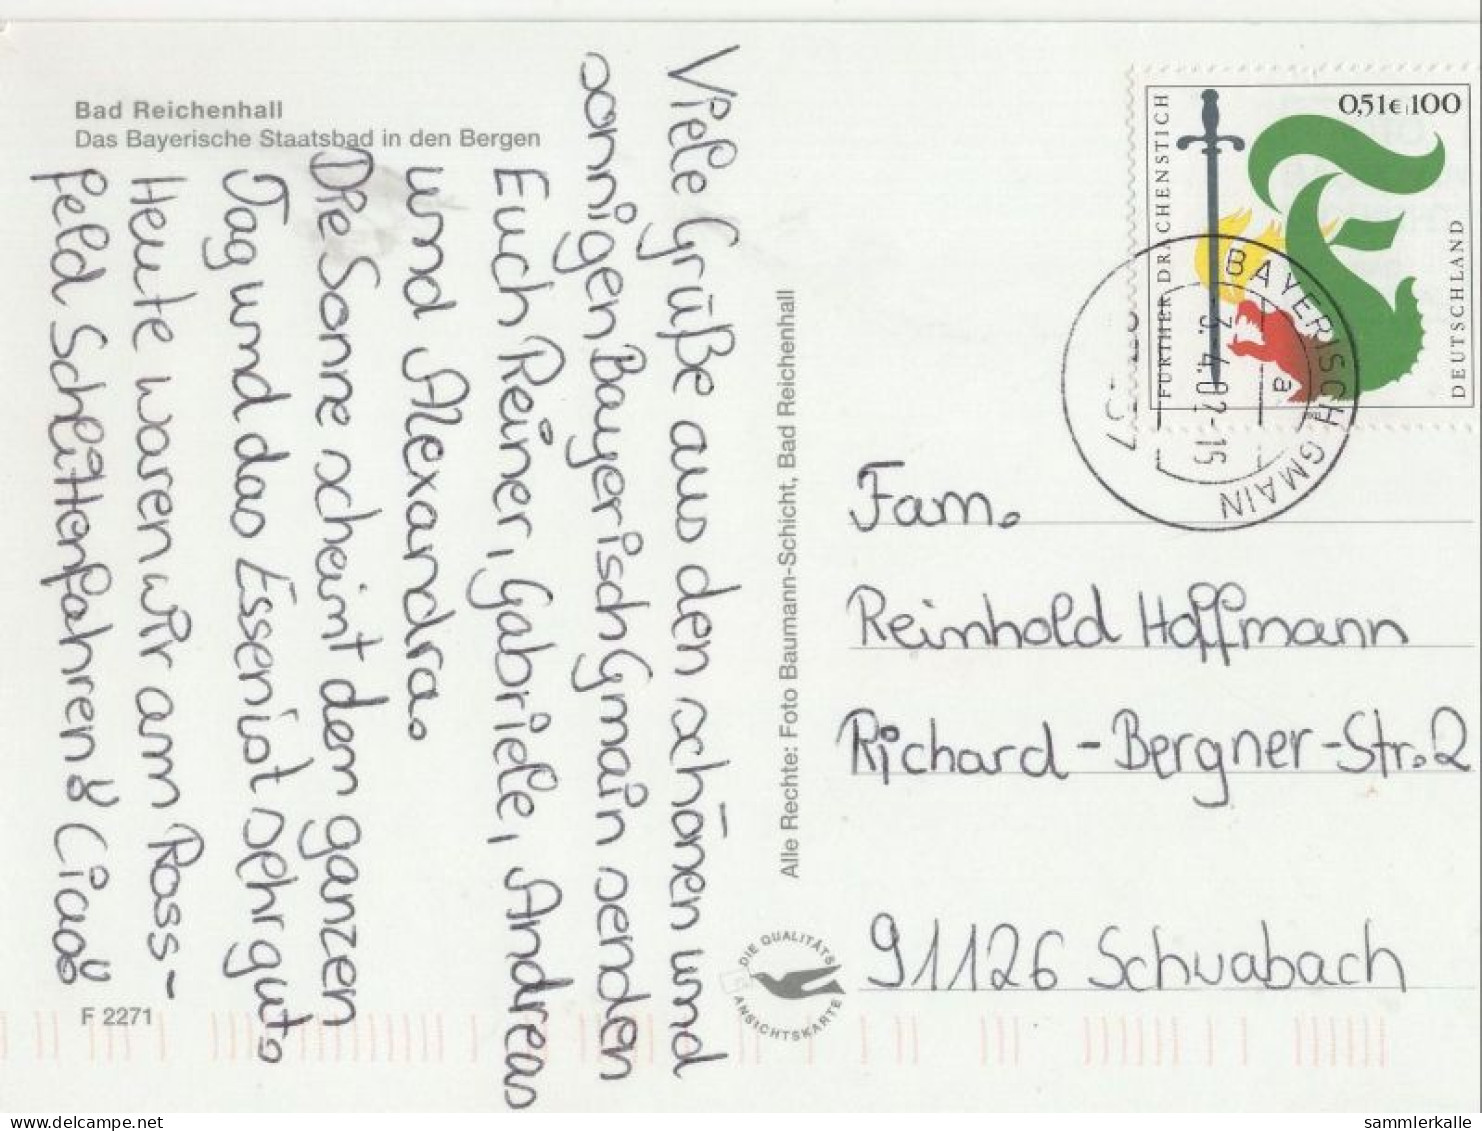 Bad Reichenhall
Das Bayerische Staatsbad in den Bergen
Viele Grüße aus den schönen und
sonnigen Bayerisch Gmain senden
Euch Reiner, Gabriele, Andreas
und Alexandra.
Die Sonne scheint dem ganzen
Tag und das Essen ist sehr gut.
Heute waren wir am Ross-
feld Schlittenfahren! Ciao!
F 2271
Alle Rechte: Foto Baumann-Schicht, Bad Reichenhall
DIE QUALITÄTS
ANSICHTSKARTE
FURTHER DRACHENSTICH
0,51€ 100
DEUTSCHLAND
BAYERISCH GMAIN
a
3.4.02-15
Fam.
Reinhold Hoffmann
Richard-Bergner-Str. 2
91126 Schwabach
sammlerkalle
delcampe.net